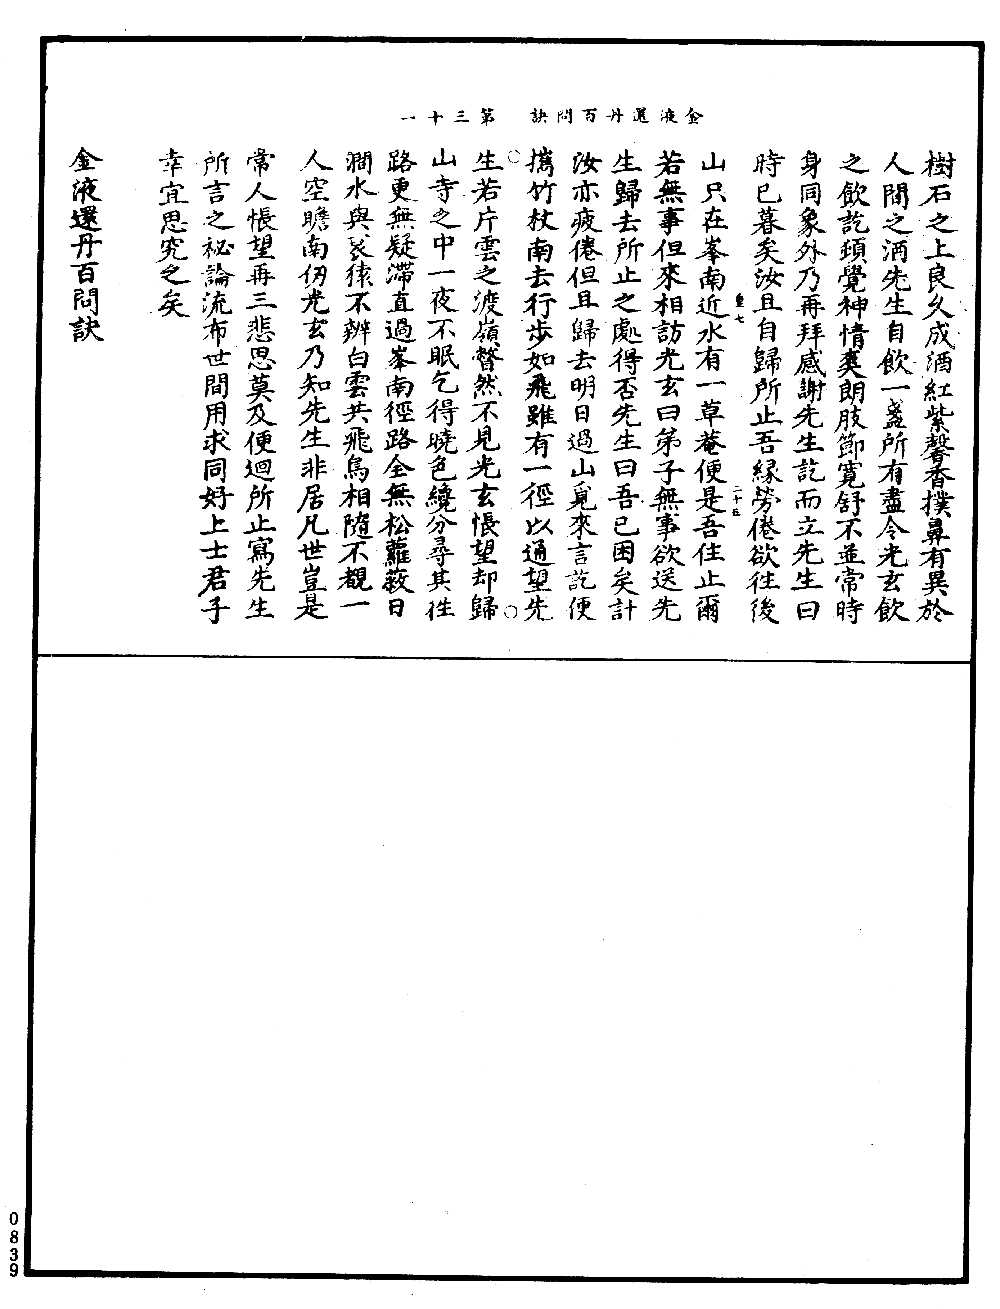 金液還丹百問訣　第三十一
樹石之上良久成酒紅紫馨香撲鼻有異於
人間之酒先生自飲一盞所有盡令光玄飲
之飲訖頊覺神情爽朗肢節寬舒不並常時
身同象外乃再拜感謝先生訖而立先生曰
時已暮矣汝且自歸所止吾緣勞倦欲往後
重七　二十五
山只在峯南近水有一草菴便是吾住止爾
若無事但來相訪光玄曰弟子無事欲送先
生歸去所止之處得否先生曰吾已困矣計
汝亦疲倦但且歸去明日過山覓來言訖便
攜竹杖南去行步如飛雖有一徑以通望先
○　○
生若片雲之渡嶺瞥然不見光玄悵望却歸
山寺之中一夜不眠乞得曉色纔分尋其徃
路更無疑滯直過峯南徑路全無松蘿蔽日
澗水與哀猿不辨白雲共飛鳥相隨不覩一
人空瞻南仞光玄乃知先生非居凡世豈是
常人悵望再三悲思莫及便迴所止寫先生
所言之祕論流布世間用求同好上士君子
幸宜思究之矣
金液還丹百問訣
0839